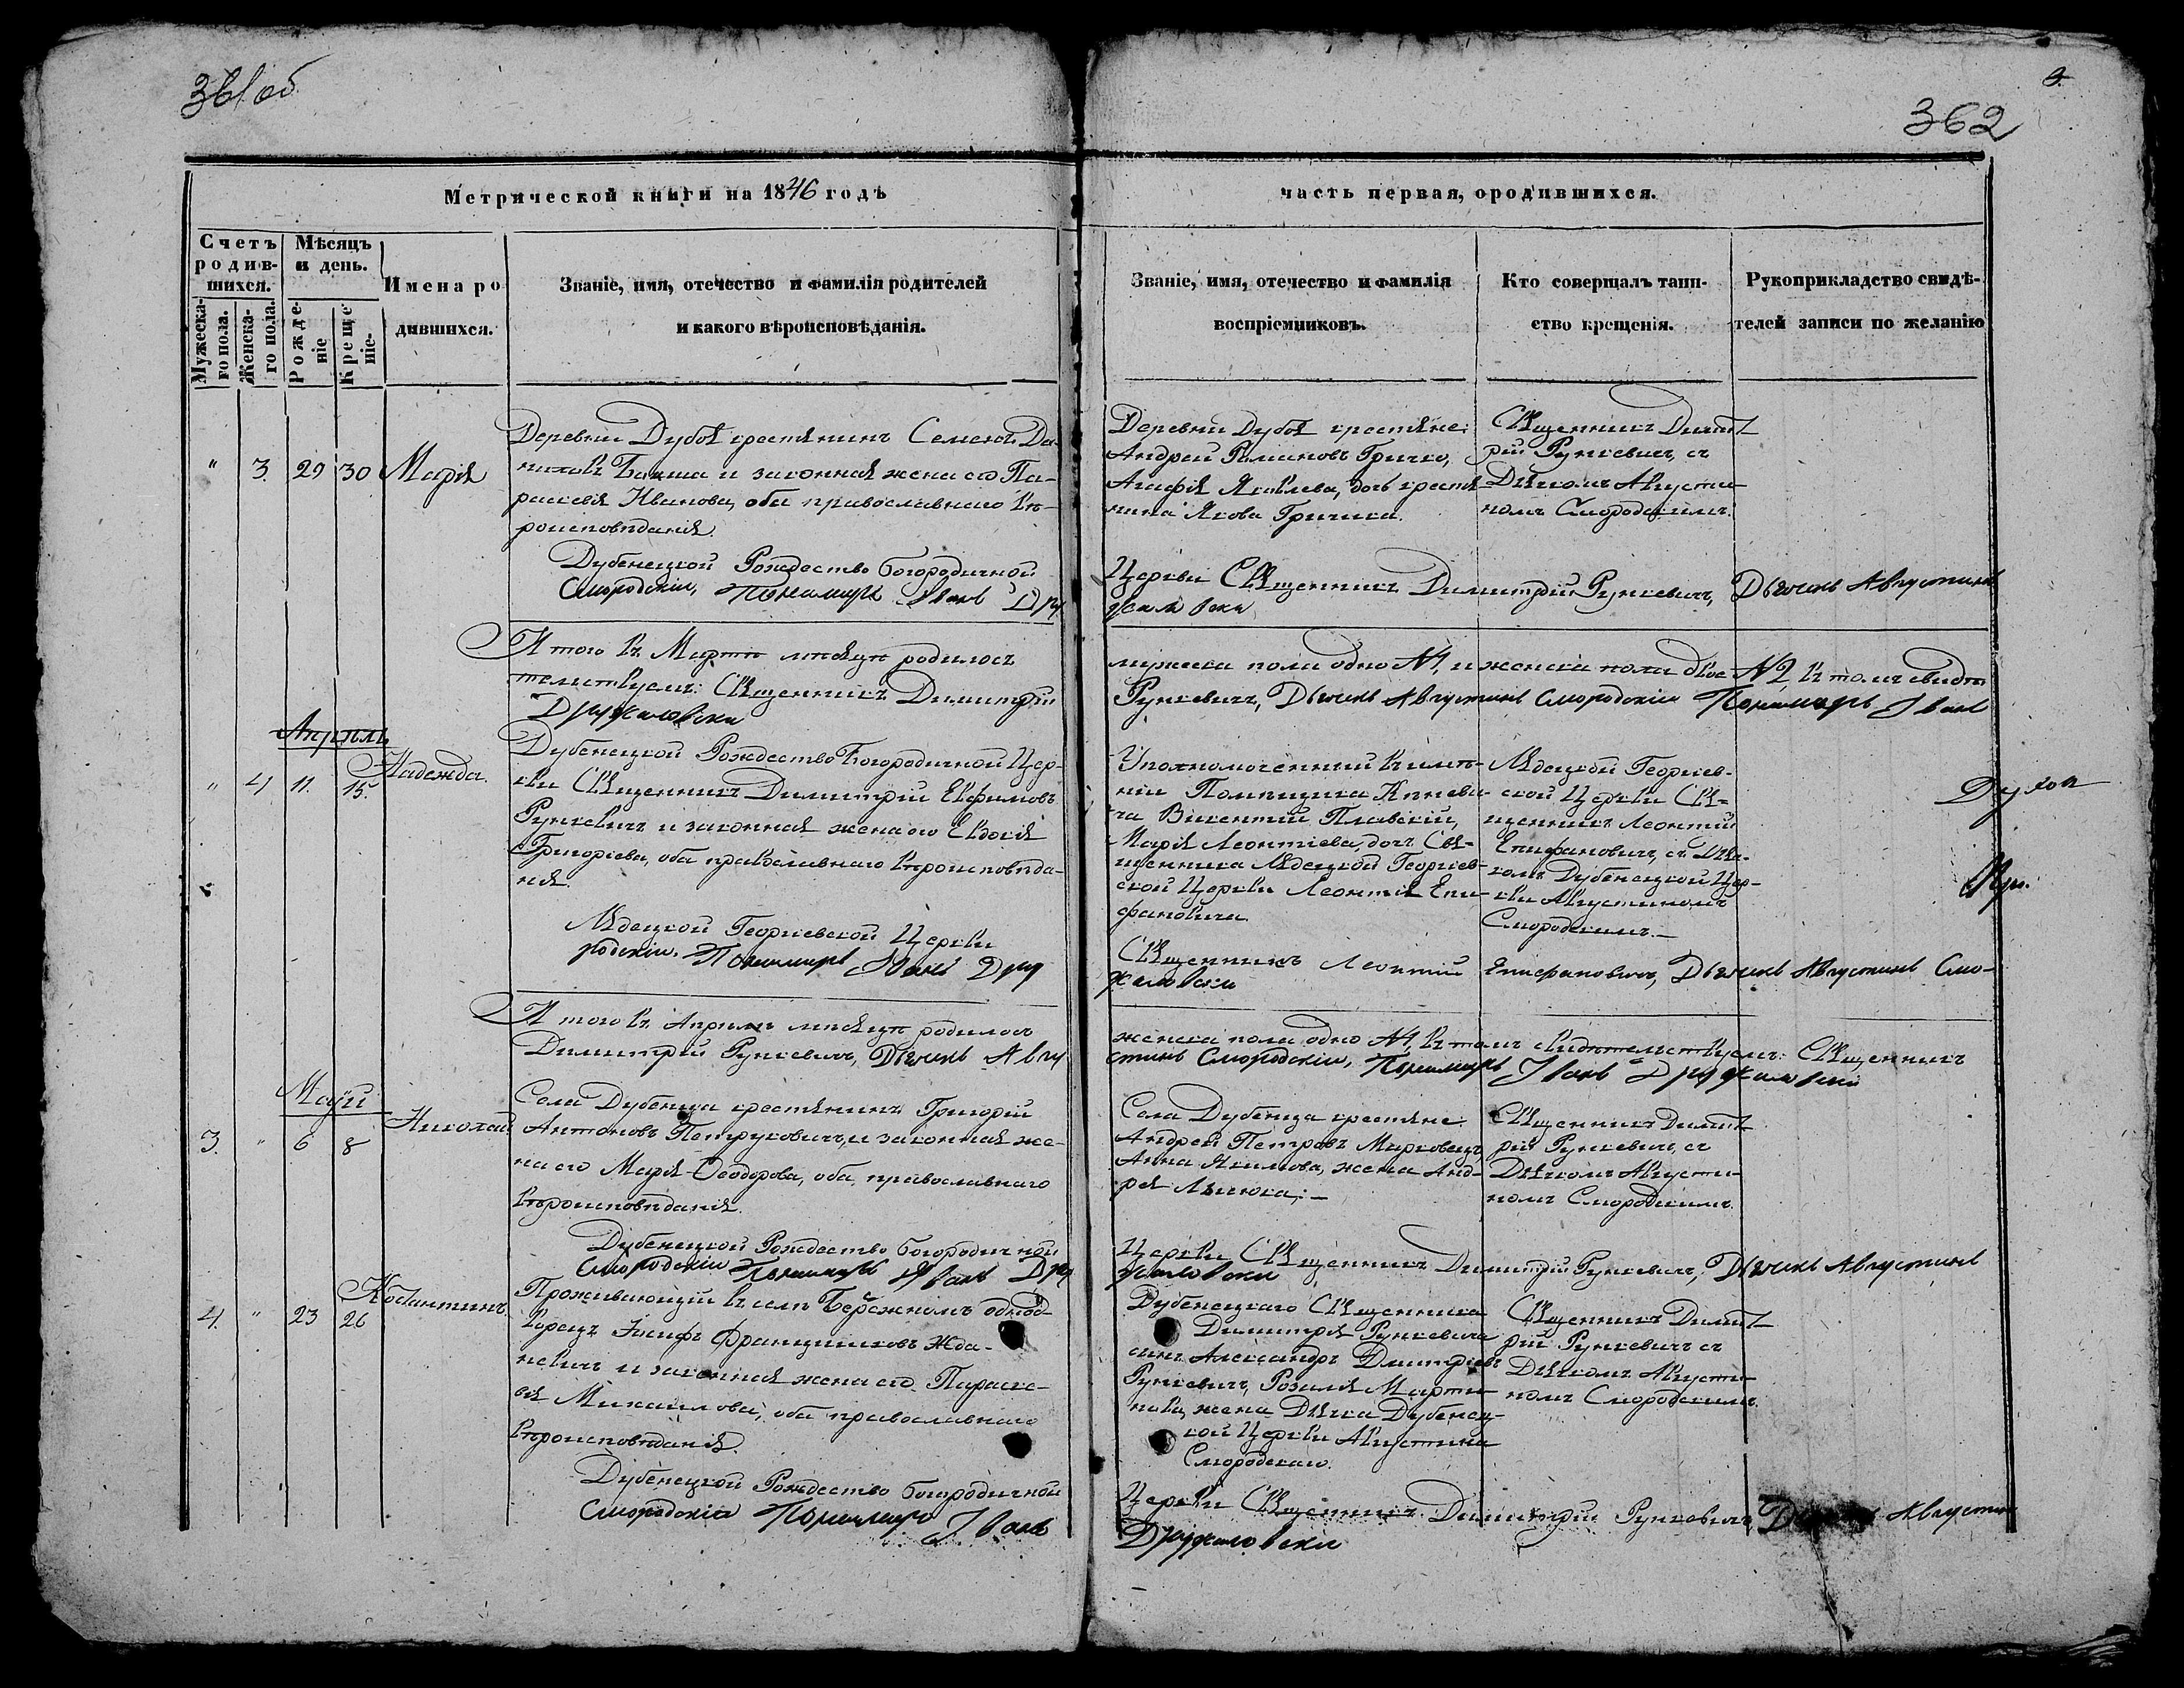 361 об
3.
362
Метрической книги на 1846 годъ
часть первая, ородившихся.
Счетъ родившихся.
Мѣсяцъ и день.
Мужескаго пола.
Женскаго пола.
Рожденіе
Крещеніе.
Имена родившихся.
Званіе, имя, отечество и фамилія родителей
и какого вѣроисповѣданія.
Званіе, имя, отечество и фамилія
воспріемниковъ.
Кто совершалъ таин-
ство крещенія.
Рукоприкладство свидѣ-
телей записи по желанію
" 3. 29 30 Марія
Деревни Дубоя крестянинъ Семенъ Да-
ниловъ и законная жена его Па-
раскевія Иванова, оба православнаго вѣ-
роисповѣданія.
Деревни Дубоя крестяне:
Андрей Романовъ Гричко,
Агафія Яковлева, дочь крестя-
нина Якова Гричика.
Священникъ Димит-
рій Рункевичъ, съ
Дьякомъ Августи-
номъ Смородскимъ.
Дубенецкой Рождество Богородичной
Церкви Священникъ Димитрій Рункевичъ, Дьячекъ Августинъ
Смородскіи, Пономарь Іванъ Дру
жиловски
Итого въ Мартѣ мѣсяцѣ родилось
мужеска пола одно №1, и женска пола двое №2, въ томъ свидѣ
тельствуемъ: Священникъ Димитрій
Рункевичъ, Дьячекъ Августинъ Смородскіи Пономарь Іванъ
Дружиловски
Апрѣль
" 4 11. 15. Надежда.
Дубенецкой Рождество Богородичной Цер-
кви Священникъ Димитрій Евфимовъ
Рункевичъ и законная жена его Евдокія
Григоріева, оба православнаго вѣроисповѣда-
нія.
Уполномоченный въ имѣ-
ніи Помѣщика
Викентий Плавскій,
Марія Леонтіева, дочь Свя-
щенника Лядецкой Георгіев-
ской Церкви Леонтія Епи-
фановича
Лядецкой Георгіев-
ской Церкви Свя-
щенникъ Леонтій
Епифановичъ, съ Дья-
комъ Дубенецкой Цер-
кви Августиномъ
Смородскимъ.
Лядецкой Георгіевской Церкви
Священникъ Леонтій Епифановичъ, Дьячекъ Августинъ Смо-
родскіи. Пономарь Іванъ Дру
жиловски
Итого въ Априлѣ мѣсяцѣ родилось
женска пола одно №1, въ томъ свидѣтельствуемъ: Священникъ
Димитрій Рункевичъ, Дьячекъ Авгу
стинъ Смородскіи, Пономарь Іванъ Дружиловски
Маій
3. " 6 8 Николай
Села Дубенца крестянинъ Григорій
Антоновъ Петруковичъ, и законная же-
на его Марія Ѳеодорова, оба православнаго
вѣроисповѣданія.
Села Дубенца крестяне:
Андрей Петровъ Марковецъ,
Анна Якимова, жена Анд-
рея
Священникъ Димит-
рій Рункевичъ, съ
Дьякомъ Августи-
номъ Смородскимъ.
Дубенецкой Рождество Богородичной
Церкви Священникъ Димитрій Рункевичъ, Дьячекъ Августинъ
Смородскіи Пономарь Іванъ Дру
жиловски
4. " 23 26 Костантинъ.
Проживающій въ селѣ Бережномъ однод-
ворецъ Іосифъ Францишковъ Жда-
невичъ и законная жена его Параске-
вія Михаилова, оба православнаго
вѣроисповѣданія.
Дубенецкаго Священника
Димитрія Рункевича
сынъ Александръ Димитріевъ
Рункевичъ, Розалія Марти-
нова, жена Дьяка Дубенец-
кой Церкви Августина
Смородскаго.
Священникъ Димит-
рій Рункевичъ съ
Дьякомъ Августи-
номъ Смородскимъ.
Дубенецкой Рождество Богородичной
Церкви Священникъ Димитрій Рункевичъ, Августин
Смородскіи Пономарь Іванъ
Дружиловски